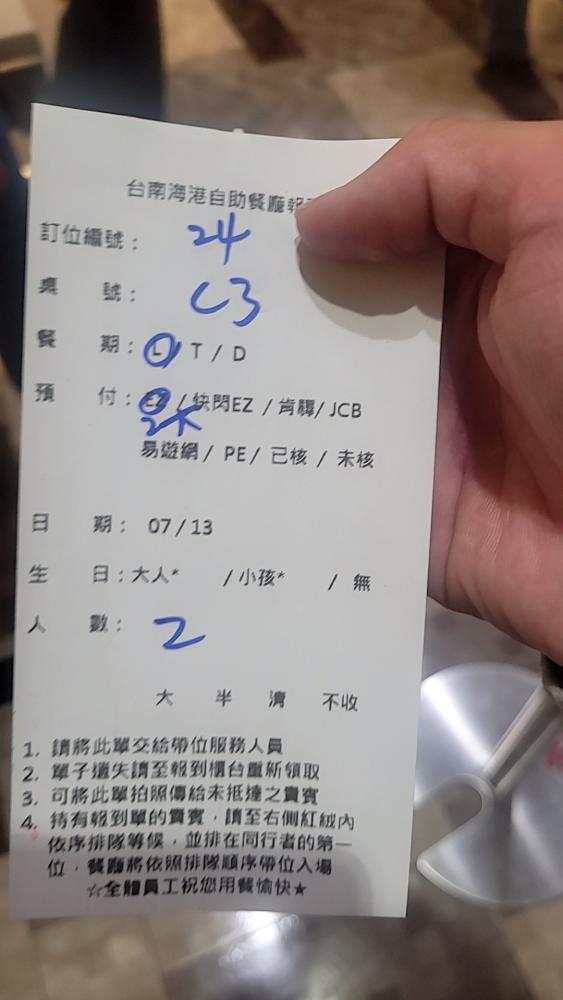 台南海港自助餐廳報
訂位編號： 24
桌 號： C3
餐 期：L / T / D
預 付：EZ / 快閃EZ / 肯驛/ JCB
易遊網 / PE / 已核 / 未核
日 期： 07 / 13
生 日：大人* / 小孩* / 無
人 數： 2
大 半 濟 不收
1. 請將此單交給帶位服務人員
2. 單子遺失請至報到櫃台重新領取
3. 可將此單拍照傳給未抵達之貴賓
4. 持有報到單的貴賓，請至右側紅絨內
依序排隊等候，並排在同行者的第一
位，餐廳將依照排隊順序帶位入場
☆全體員工祝您用餐愉快★